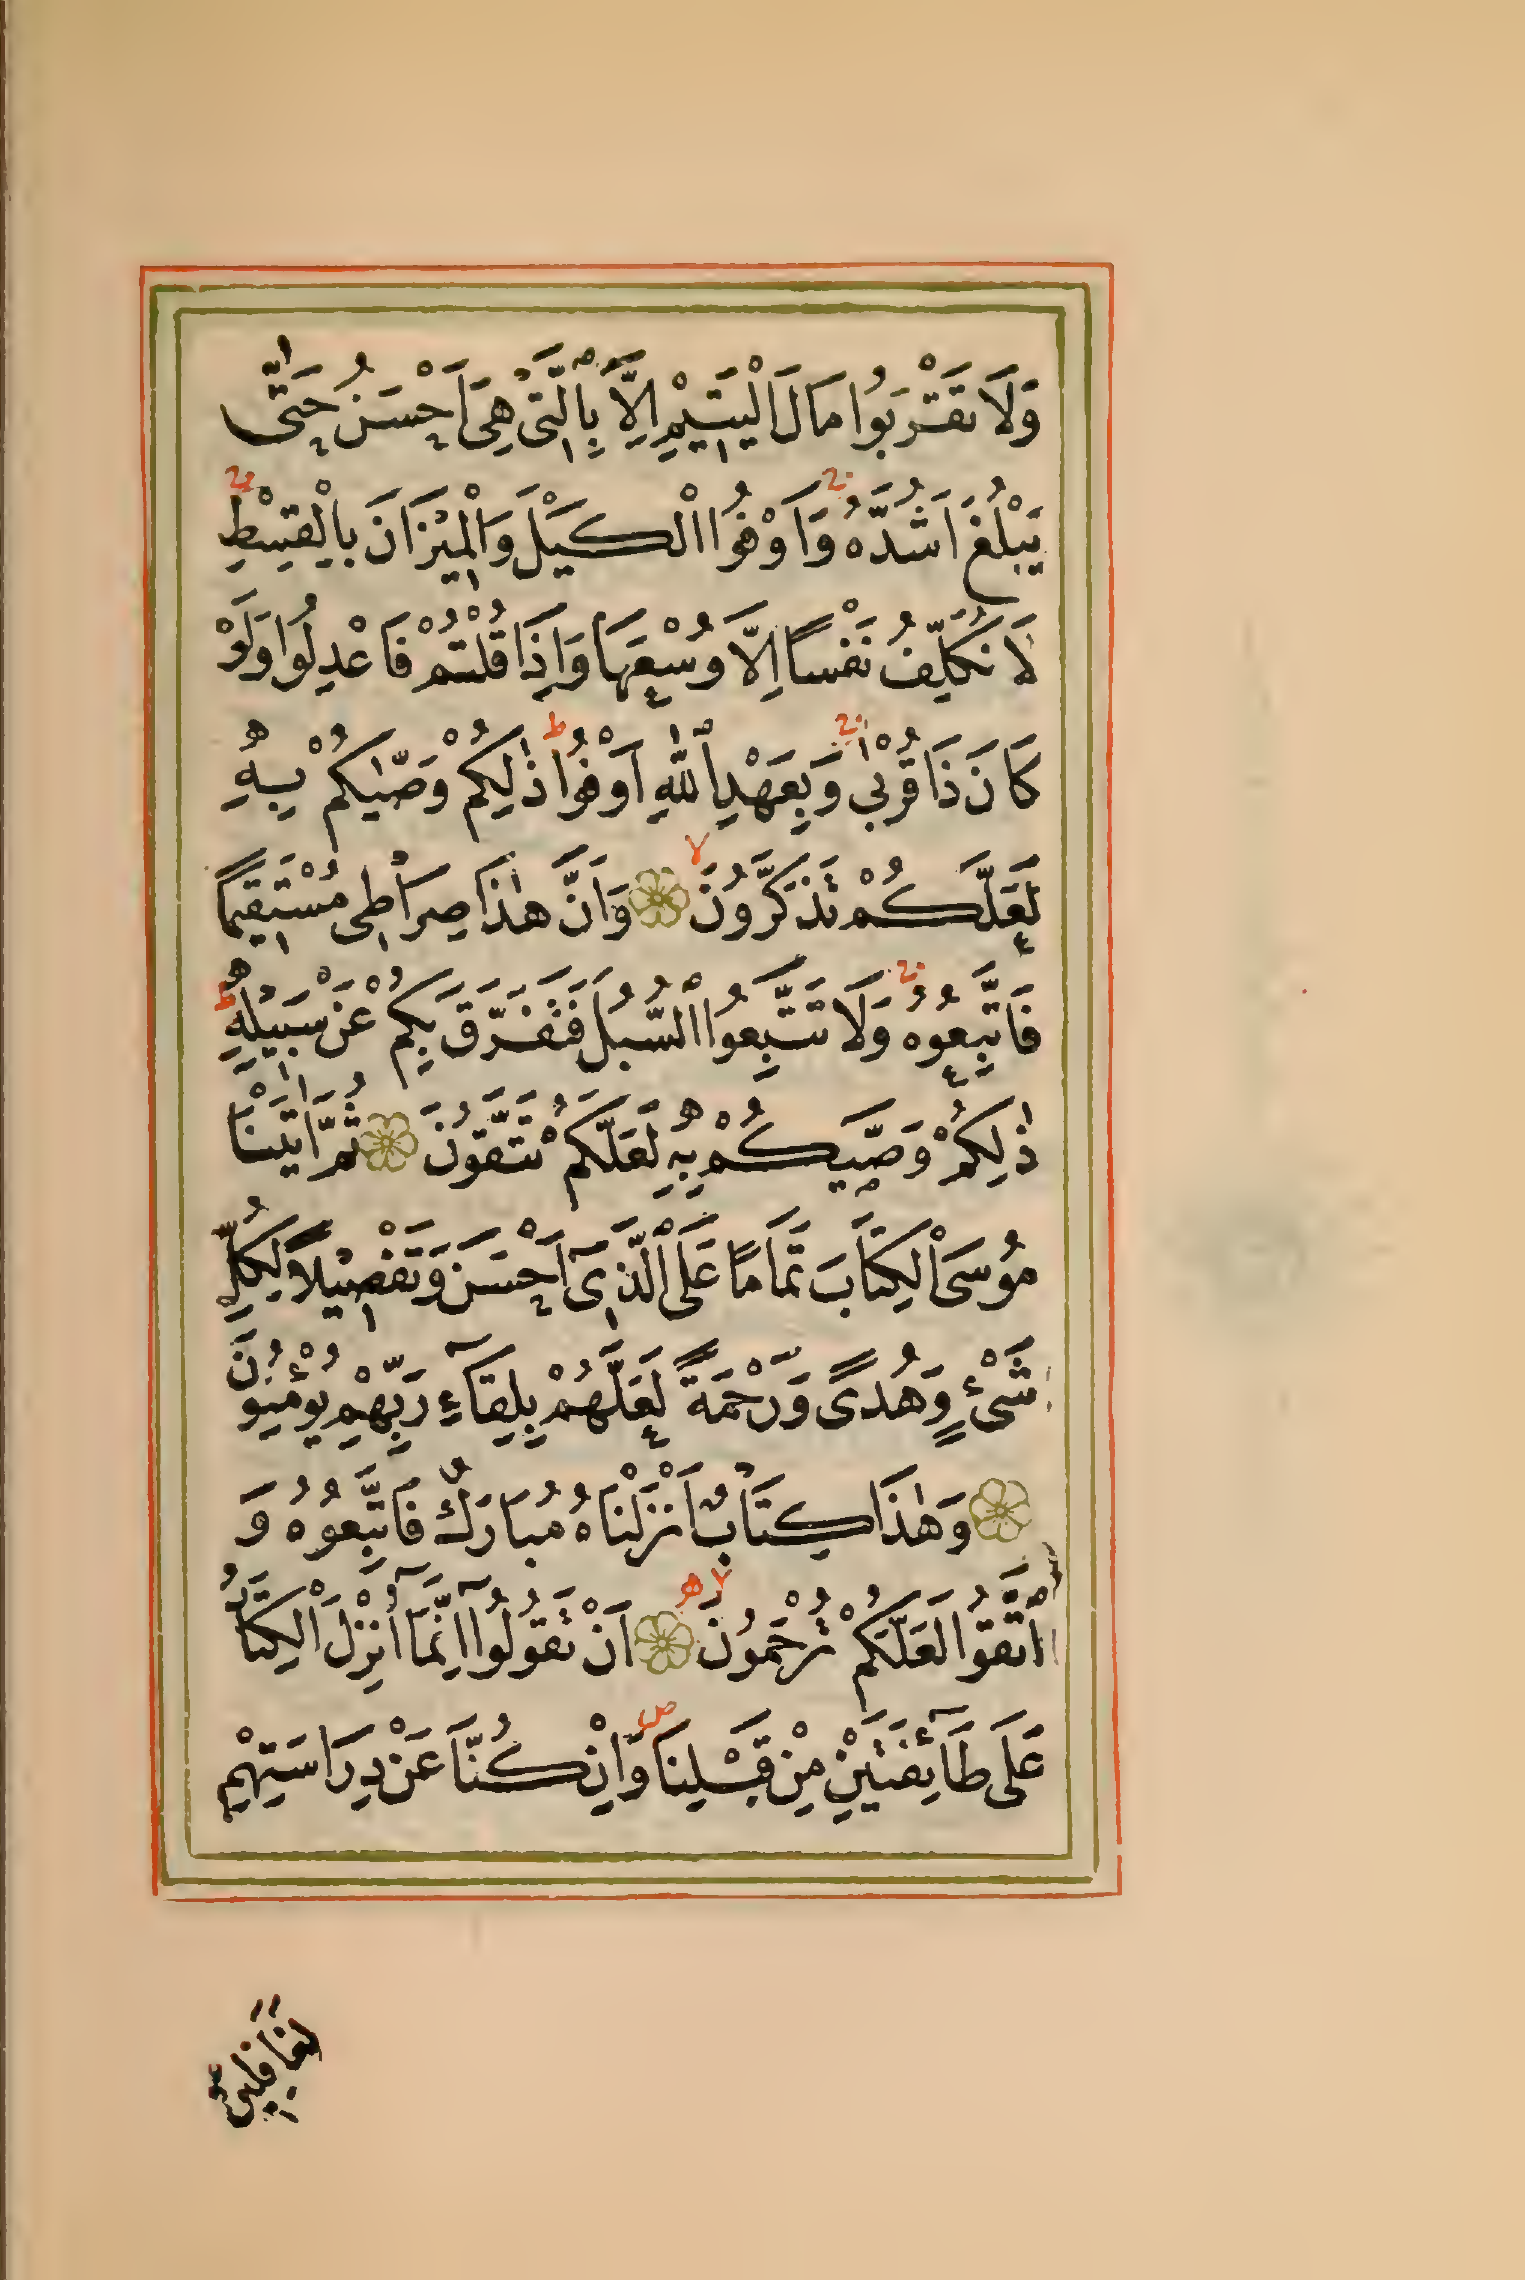 وَلَا تَقْرَبُوا مَالَ الْيَتِيْمِ اِلَّا بِالَّتٖى هِىَ اَحْسَنُ حَتّٰى
يَبْلُغَ اَشُدَّهُ ج وَاَوْفُوا الْكَيْلَ وَالْمِيْزَانَ بِالْقِسْطِ ج
لَا نُكَلِّفُ نَفْسًا اِلَّا وُسْعَهَا وَاِذَا قُلْتُمْ فَاعْدِلُوا وَلَوْ
كَانَ ذَا قُرْبٰى ج وَبِعَهْدِ اللّٰهِ اَوْفُوا ط ذٰلِكُمْ وَصّٰيكُمْ بِهٖ
لَعَلَّكُمْ تَذَكَّرُونَ لا وَاَنَّ هٰذَا صِرَاطٖى مُسْتَقِيمًا
فَاتَّبِعُوهُ ج وَلَا تَتَّبِعُوا السُّبُلَ فَتَفَرَّقَ بِكُمْ عَنْ سَبِيْلِهٖ ط
ذٰلِكُمْ وَصّٰيكُمْ بِهٖ لَعَلَّكُمْ تَتَّقُونَ ثُمَّ اٰتَيْنَا
مُوسَى الْكِتَابَ تَمَامًا عَلَى الَّذٖىٓ اَحْسَنَ وَتَفْصِيْلًا لِكُلِّ
شَىْءٍ وَهُدًى وَرَحْمَةً لَعَلَّهُمْ بِلِقَآءِ رَبِّهِمْ يُؤْمِنُونَ
وَهٰذَا كِتَابٌ اَنْزَلْنَاهُ مُبَارَكٌ فَاتَّبِعُوهُ وَ
اتَّقُوا لَعَلَّكُمْ تُرْحَمُونَ لا ه اَنْ تَقُولُوٓا اِنَّمَٓا اُنْزِلَ الْكِتَابُ
عَلٰى طَآئِفَتَيْنِ مِنْ قَبْلِنَا ص وَاِنْ كُنَّا عَنْ دِرَاسَتِهِمْ
لَغَافِلِينَ